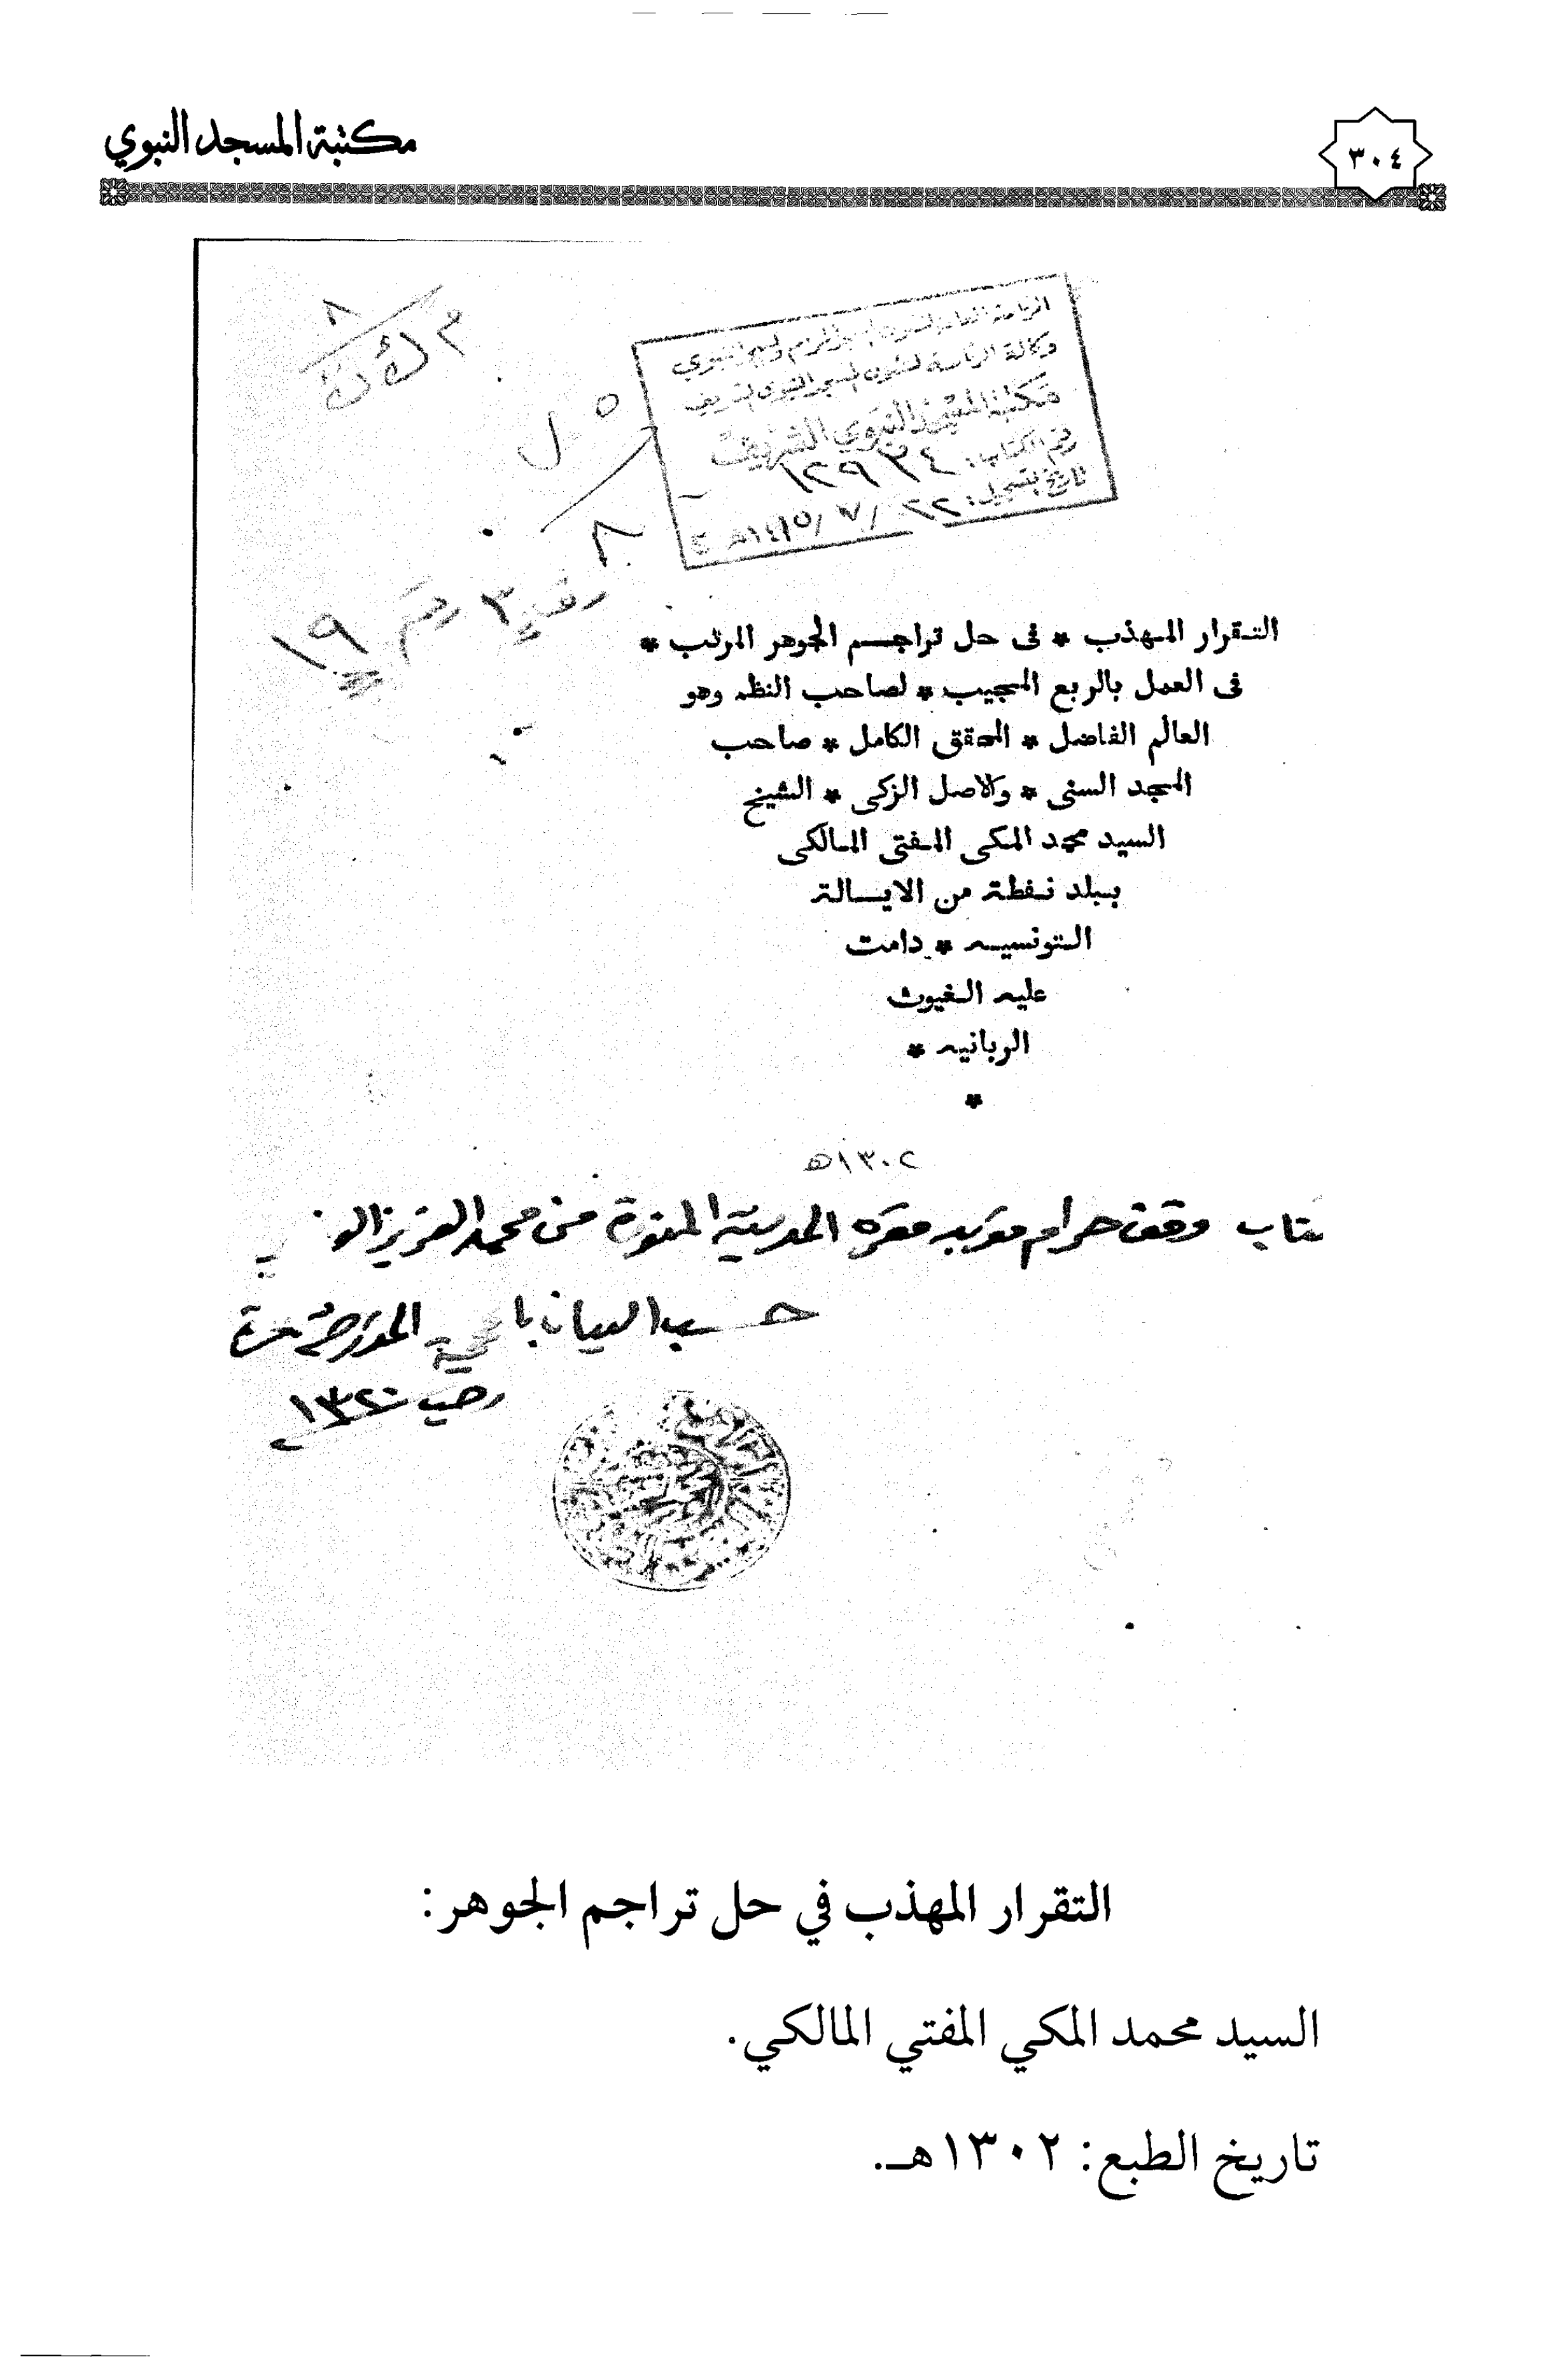 ٣٠٤
مكتبة المسجد النبوي
الرئاسة العامة لشؤون المسجد الحرام والمسجد النبوي
وكالة الرئاسة لشؤون المسجد النبوي الشريف
مكتبة المسجد النبوي الشريف
رقم الكتاب: ١٢٩٣٤
تاريخ التسجيل: ٢٢ / ٧ / ١٤١٥هـ
٨
٥ ل
٨
رقم ١٩
التقرار المهذب * فى حل تراجم الجوهر المرتب *
فى العمل بالربع المجيب * لصاحب النظم وهو
العالم الفاضل * المحقق الكامل * صاحب
المجد السنى * والاصل الزكى * الشيخ
السيد محمد المكى المفتى المالكى
ببلد نفطة من الايالة
التونسيه * دامت
عليه الغيوث
الربانيه *
*
١٣٠٢ھ
وقف حرام موبد مقره المدينة المنورة من محمد العزيز الو
حسب البيان المؤرخ غرة
رجب ١٣٢٠
التقرار المهذب في حل تراجم الجوهر:
السيد محمد المكي المفتي المالكي.
تاريخ الطبع: ١٣٠٢هـ.